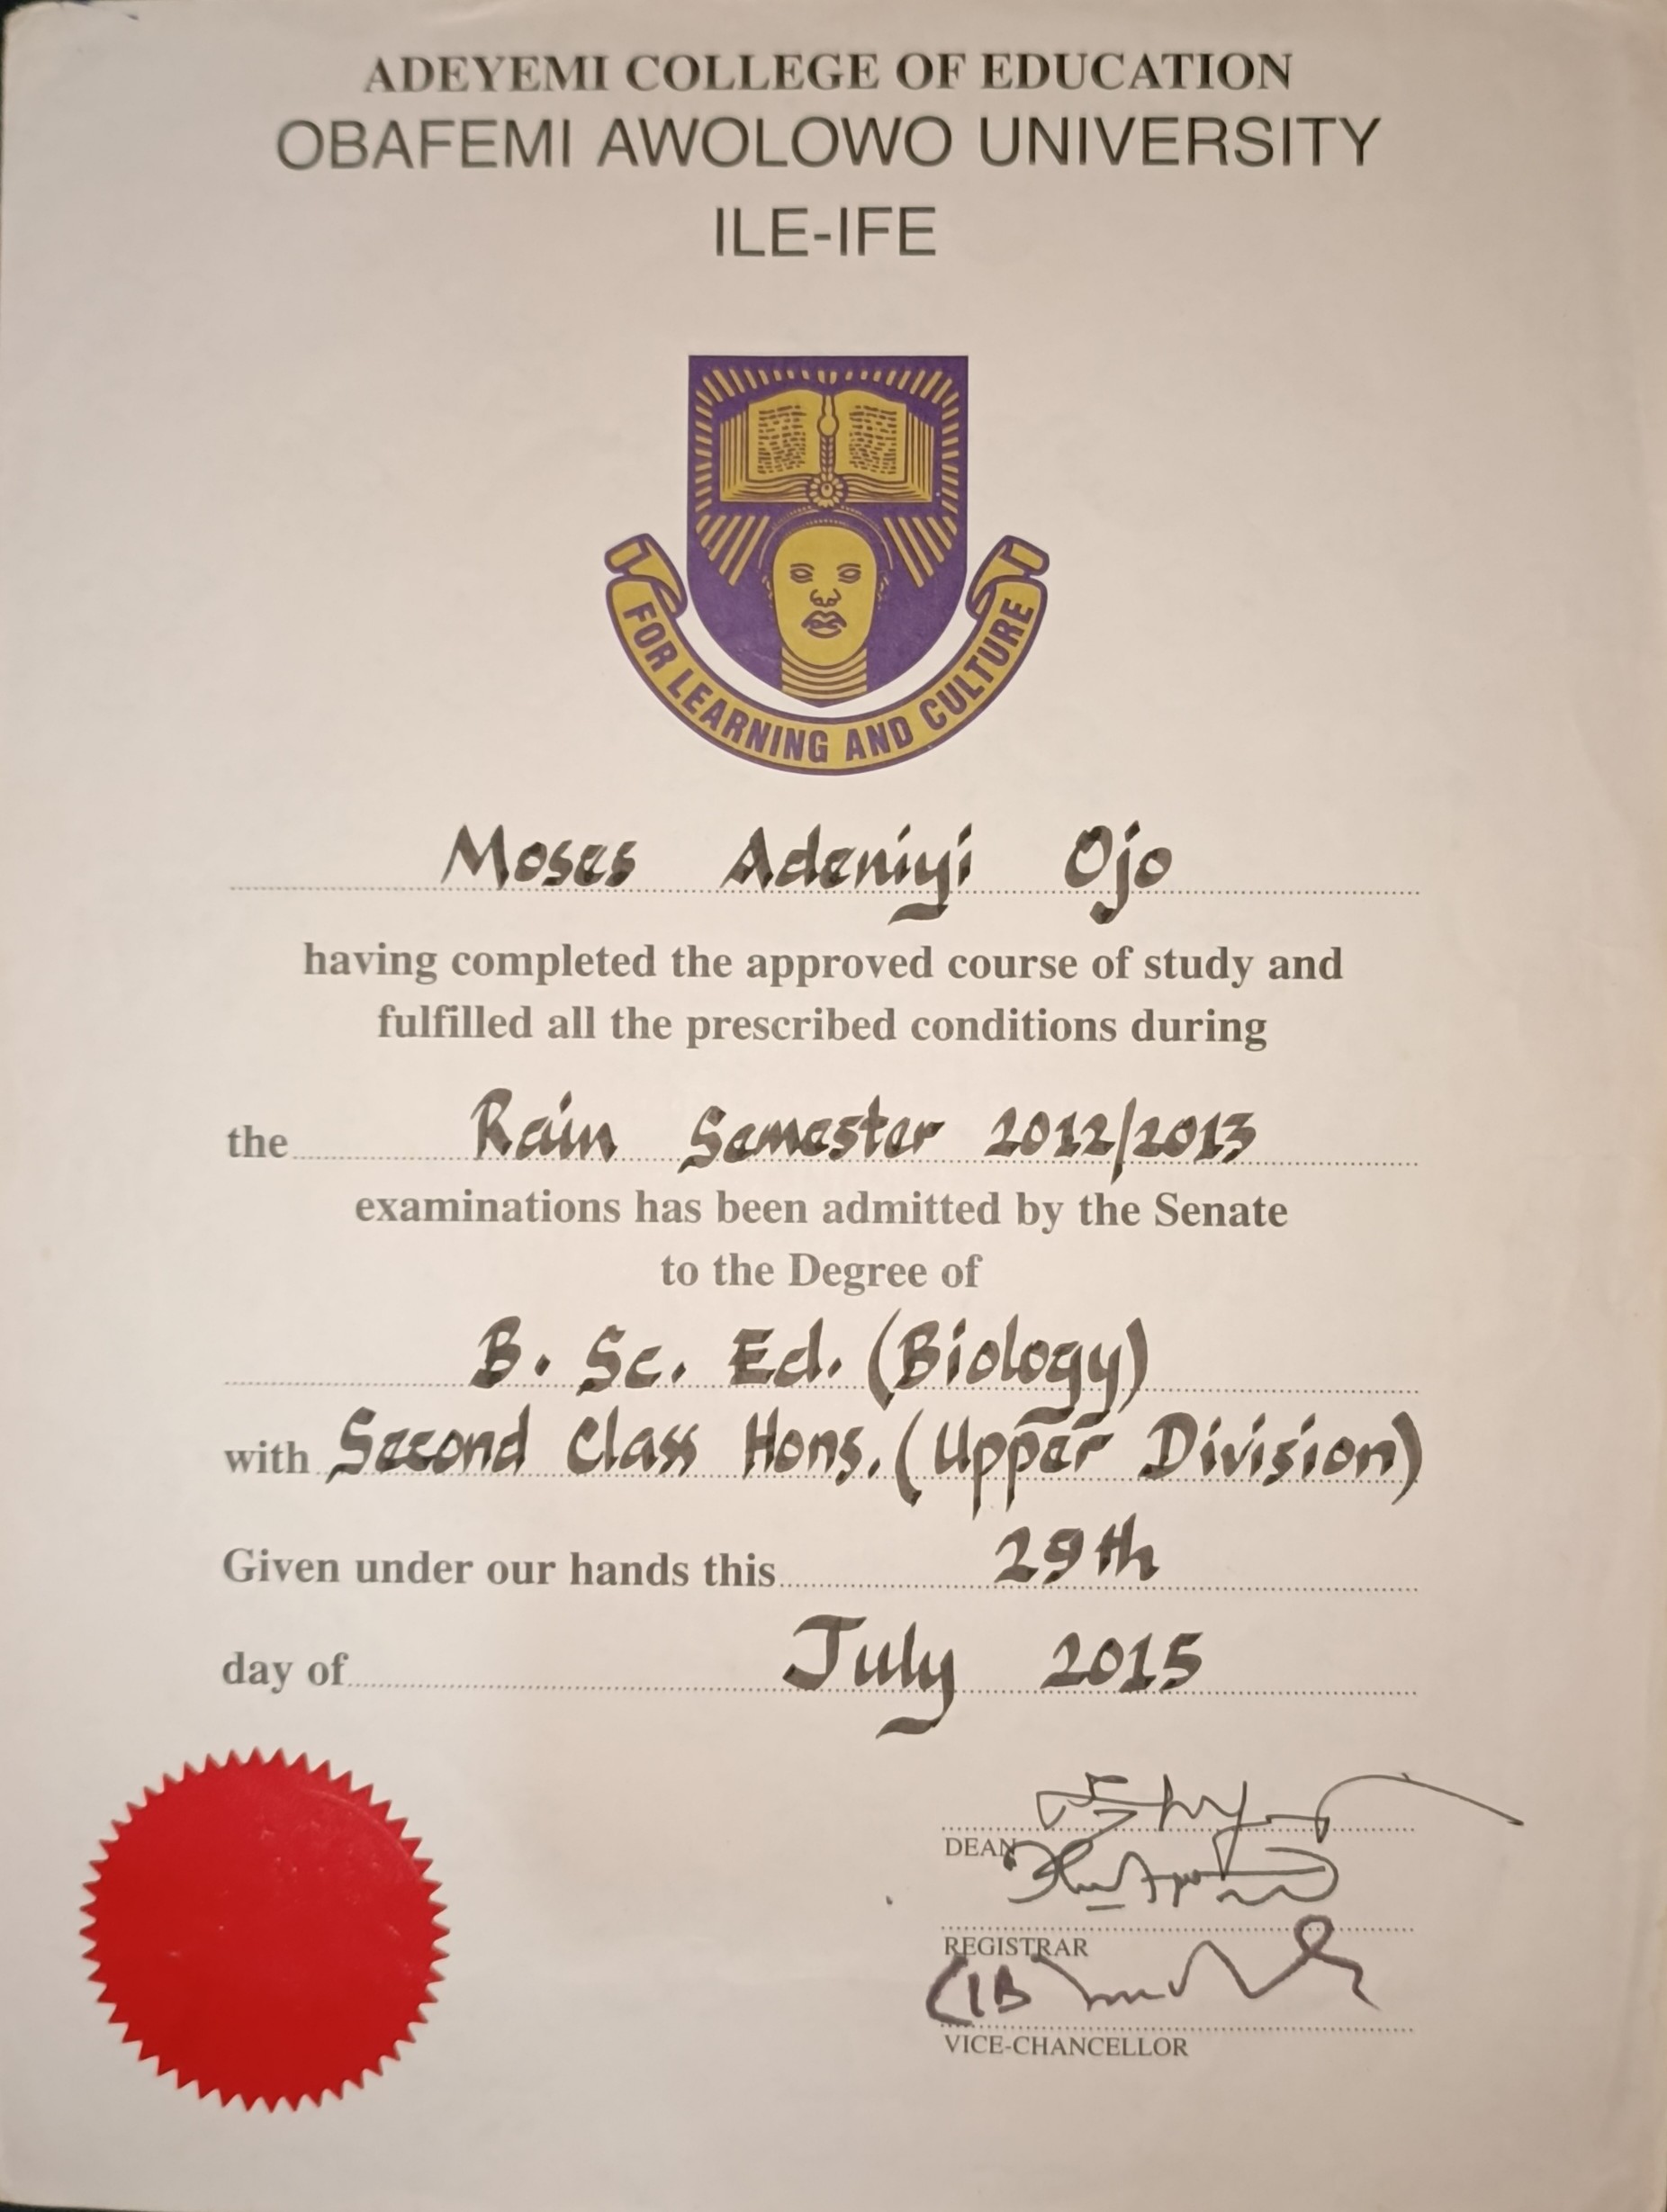 ADEYEMI COLLEGE OF EDUCATION
OBAFEMI AWOLOWO UNIVERSITY
ILE-IFE
FOR LEARNING AND CULTURE
Moses Adeniyi Ojo
having completed the approved course of study and
fulfilled all the prescribed conditions during
the Rain Semester 2012/2013
examinations has been admitted by the Senate
to the Degree of
B. Sc. Ed. (Biology)
with Second Class Hons. (Upper Division)
Given under our hands this 29th
day of July 2015
DEAN
REGISTRAR
VICE-CHANCELLOR